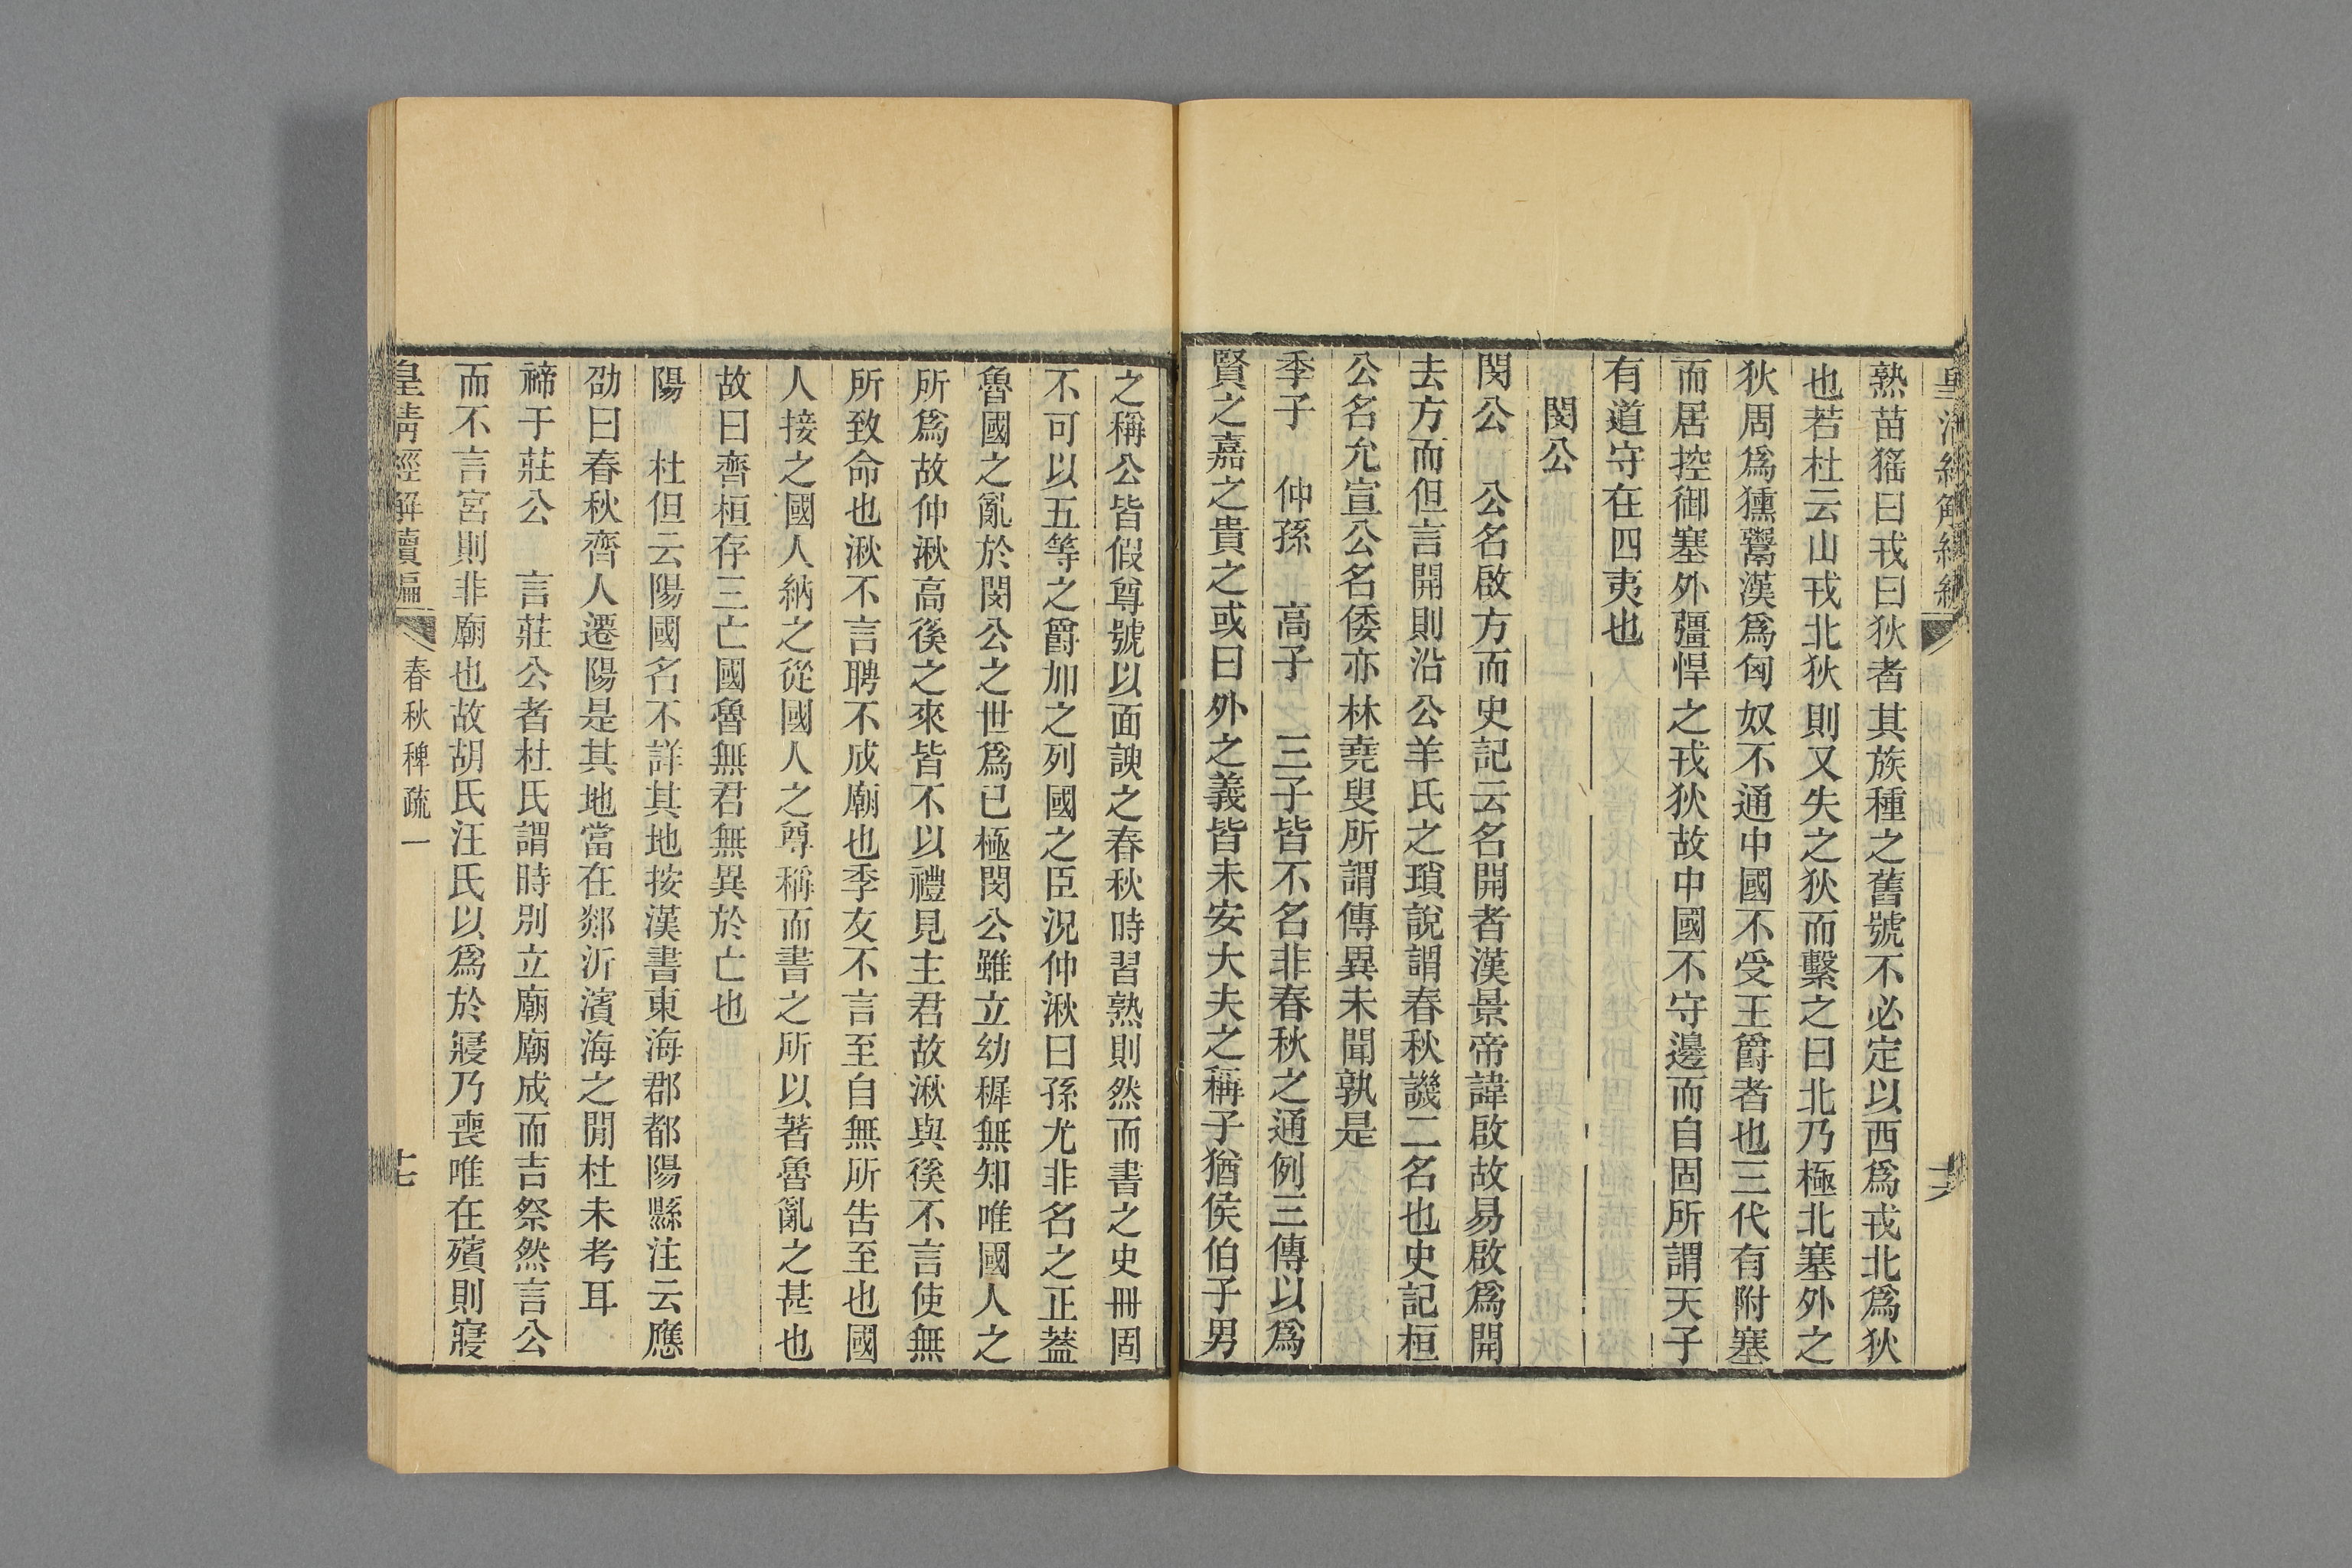 熟苗猺曰戎曰狄者其族種之舊號不必定以西爲戎北爲狄
也若杜云山戎北狄則又失之狄而繫之曰北乃極北塞外之
狄周爲獯鬻漢爲匈奴不通中國不受王爵者也三代有附塞
而居控御塞外疆悍之戎狄故中國不守邊而自固所謂天子
有道守在四夷也
閔公
閔公　公名啟方而史記云名開者漢景帝諱啟故易啟爲開
去方而但言開則沿公羊氏之瑣說謂春秋譏二名也史記桓
公名允宣公名倭亦林堯叟所謂傳異未聞孰是
季子　仲孫　高子　三子皆不名非春秋之通例三傳以爲
賢之嘉之貴之或曰外之義皆未安大夫之稱子猶侯伯子男
之稱公皆假尊號以面諛之春秋時習熟則然而書之史冊固
不可以五等之爵加之列國之臣況仲湫曰孫尤非名之正蓋
魯國之亂於閔公之世爲已極閔公雖立幼穉無知唯國人之
所爲故仲湫高徯之來皆不以禮見主君故湫與徯不言使無
所致命也湫不言聘不成廟也季友不言至自無所告至也國
人接之國人納之從國人之尊稱而書之所以著魯亂之甚也
故曰齊桓存三亡國魯無君無異於亡也
陽　杜但云陽國名不詳其地按漢書東海郡都陽縣注云應
劭曰春秋齊人遷陽是其地當在郯沂濱海之閒杜未考耳
禘于莊公　言莊公者杜氏謂時別立廟廟成而吉祭然言公
而不言宮則非廟也故胡氏汪氏以爲於寢乃喪唯在殯則寢
皇清經解續編　春秋稗疏一　十七